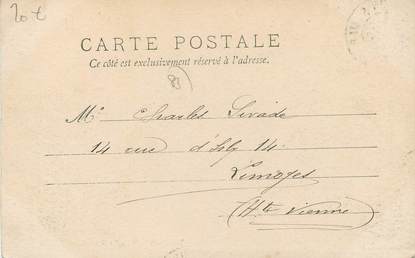 20 €
CARTE POSTALE
Ce côté est exclusivement réservé à l'adresse.
Mr Charles Sirade
14 rue d'Isly 14.
Limoges
(Hte Vienne)